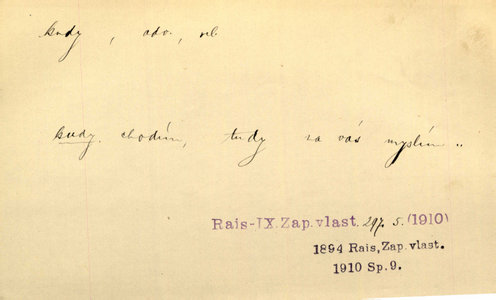 kudy, adv., rel.
kudy chodím, tudy na vás myslím..
Rais-IX. Zap. vlast. 297. 5. (1910)
1894 Rais, Zap. vlast.
1910 Sp. 9.